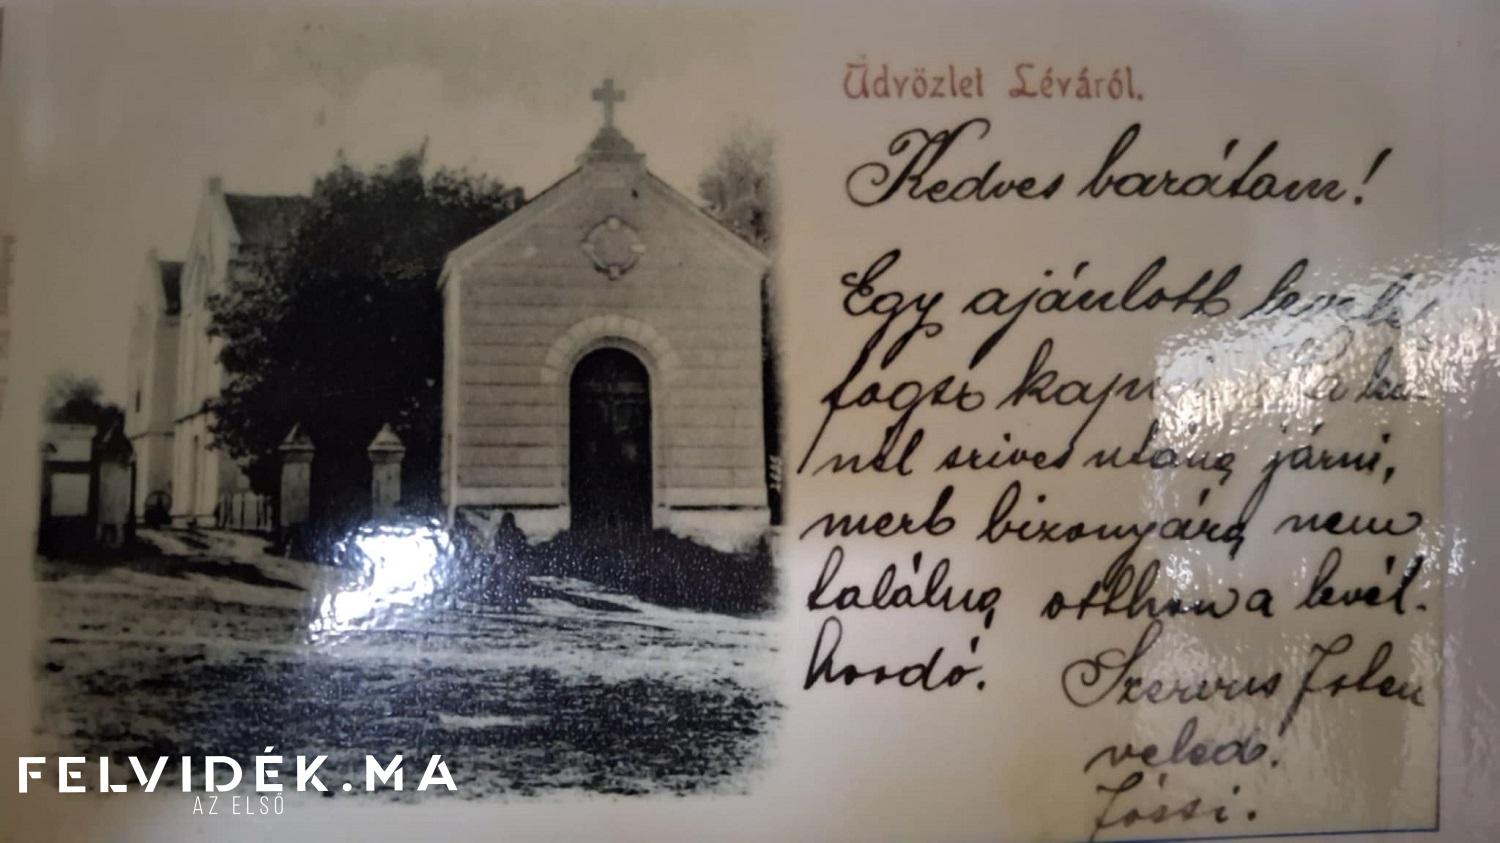 Üdvözlet Léváról.
Kedves barátom!
Egy ajánlott
fogsz
nél szives utána járni,
mert bizonyára nem
találna otthon a levél-
hordó.
Szervus Isten
veled.
Jóssi.
2665
FELVIDÉK.MA
AZ ELSŐ